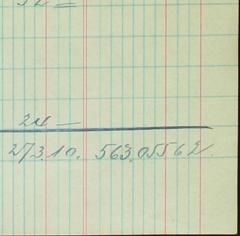 24 —
273.10. 563,05562